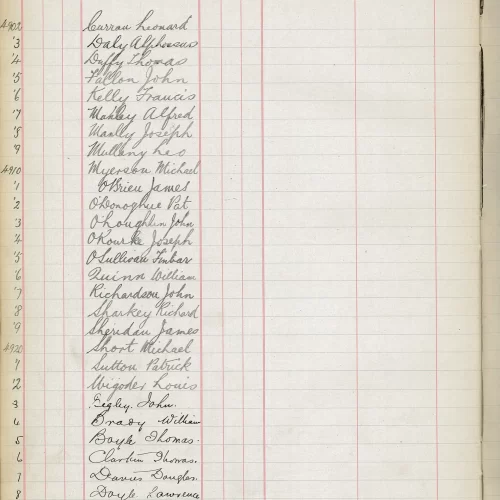 4902 Curran Leonard
'3 Daly Alphonsus
'4 Duffy Thomas
'5 Fallon John
'6 Kelly Francis
'7 Manley Alfred
'8 Manly Joseph
'9 Mullany Leo
4910 Myerson Michael
'1 O'Brien James
'2 O'Donoghue Pat
'3 O'Loughlin John
'4 O'Rourke Joseph
'5 O'Sullivan Finbar
'6 Quinn William
'7 Richardson John
'8 Sharkey Richard
'9 Sheridan James
4920 Short Michael
'1 Sutton Patrick
'2 Wigoder Louis
3 Begley John.
4 Brady William
5 Boyle Thomas.
6 Clarkin Thomas.
7 Davies Douglas.
8 Doyle Lawrence